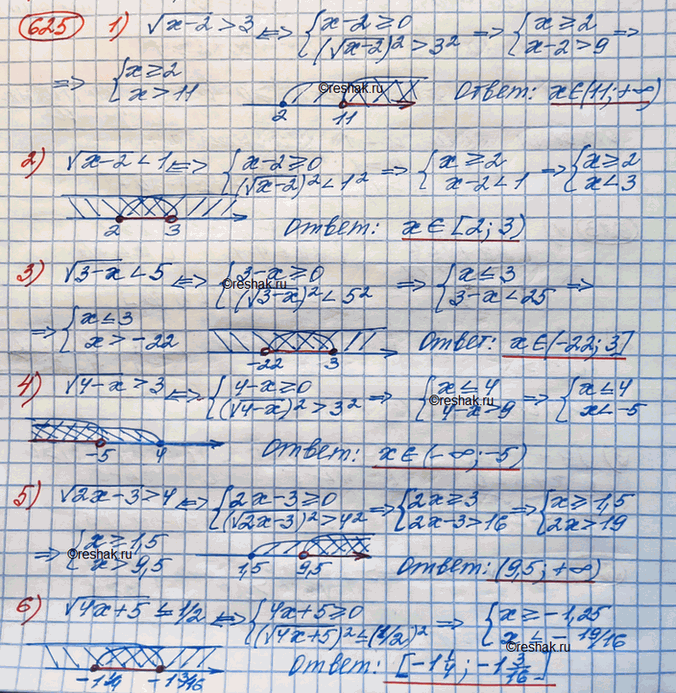 625 1) √x-2 > 3 <=> {x-2 ≥ 0 (√x-2)² > 3² => {x ≥ 2 x-2 > 9 =>
=> {x ≥ 2 x > 11 ©reshak.ru 2 11 Ответ: x∈(11; +∞)
2) √x-2 < 1 <=> {x-2 ≥ 0 (√x-2)² < 1² => {x ≥ 2 x-2 < 1 => {x ≥ 2 x < 3
2 3 Ответ: x ∈ [2; 3)
3) √3-x < 5 <=> {3-x ≥ 0 (√3-x)² < 5² => {x ≤ 3 3-x < 25 =>
©reshak.ru
=> {x ≤ 3 x > -22 -22 3 Ответ: x∈(-22; 3]
4) √4-x > 3 <=> {4-x ≥ 0 (√4-x)² > 3² => {x ≤ 4 4-x > 9 => {x ≤ 4 x < -5
©reshak.ru
-5 4 Ответ: x∈(-∞; -5)
5) √2x-3 > 4 <=> {2x-3 ≥ 0 (√2x-3)² > 4² => {2x ≥ 3 2x-3 > 16 => {x ≥ 1,5 2x > 19
=> {x ≥ 1,5 x > 9,5 ©reshak.ru 1,5 9,5 Ответ: (9,5; +∞)
6) √4x+5 ≤ 1/2 <=> {4x+5 ≥ 0 (√4x+5)² ≤ (1/2)² => {x ≥ -1,25 x ≤ - 19/16
-1 1/4 -1 3/16 Ответ: [-1 1/4; -1 3/16]
©reshak.ru